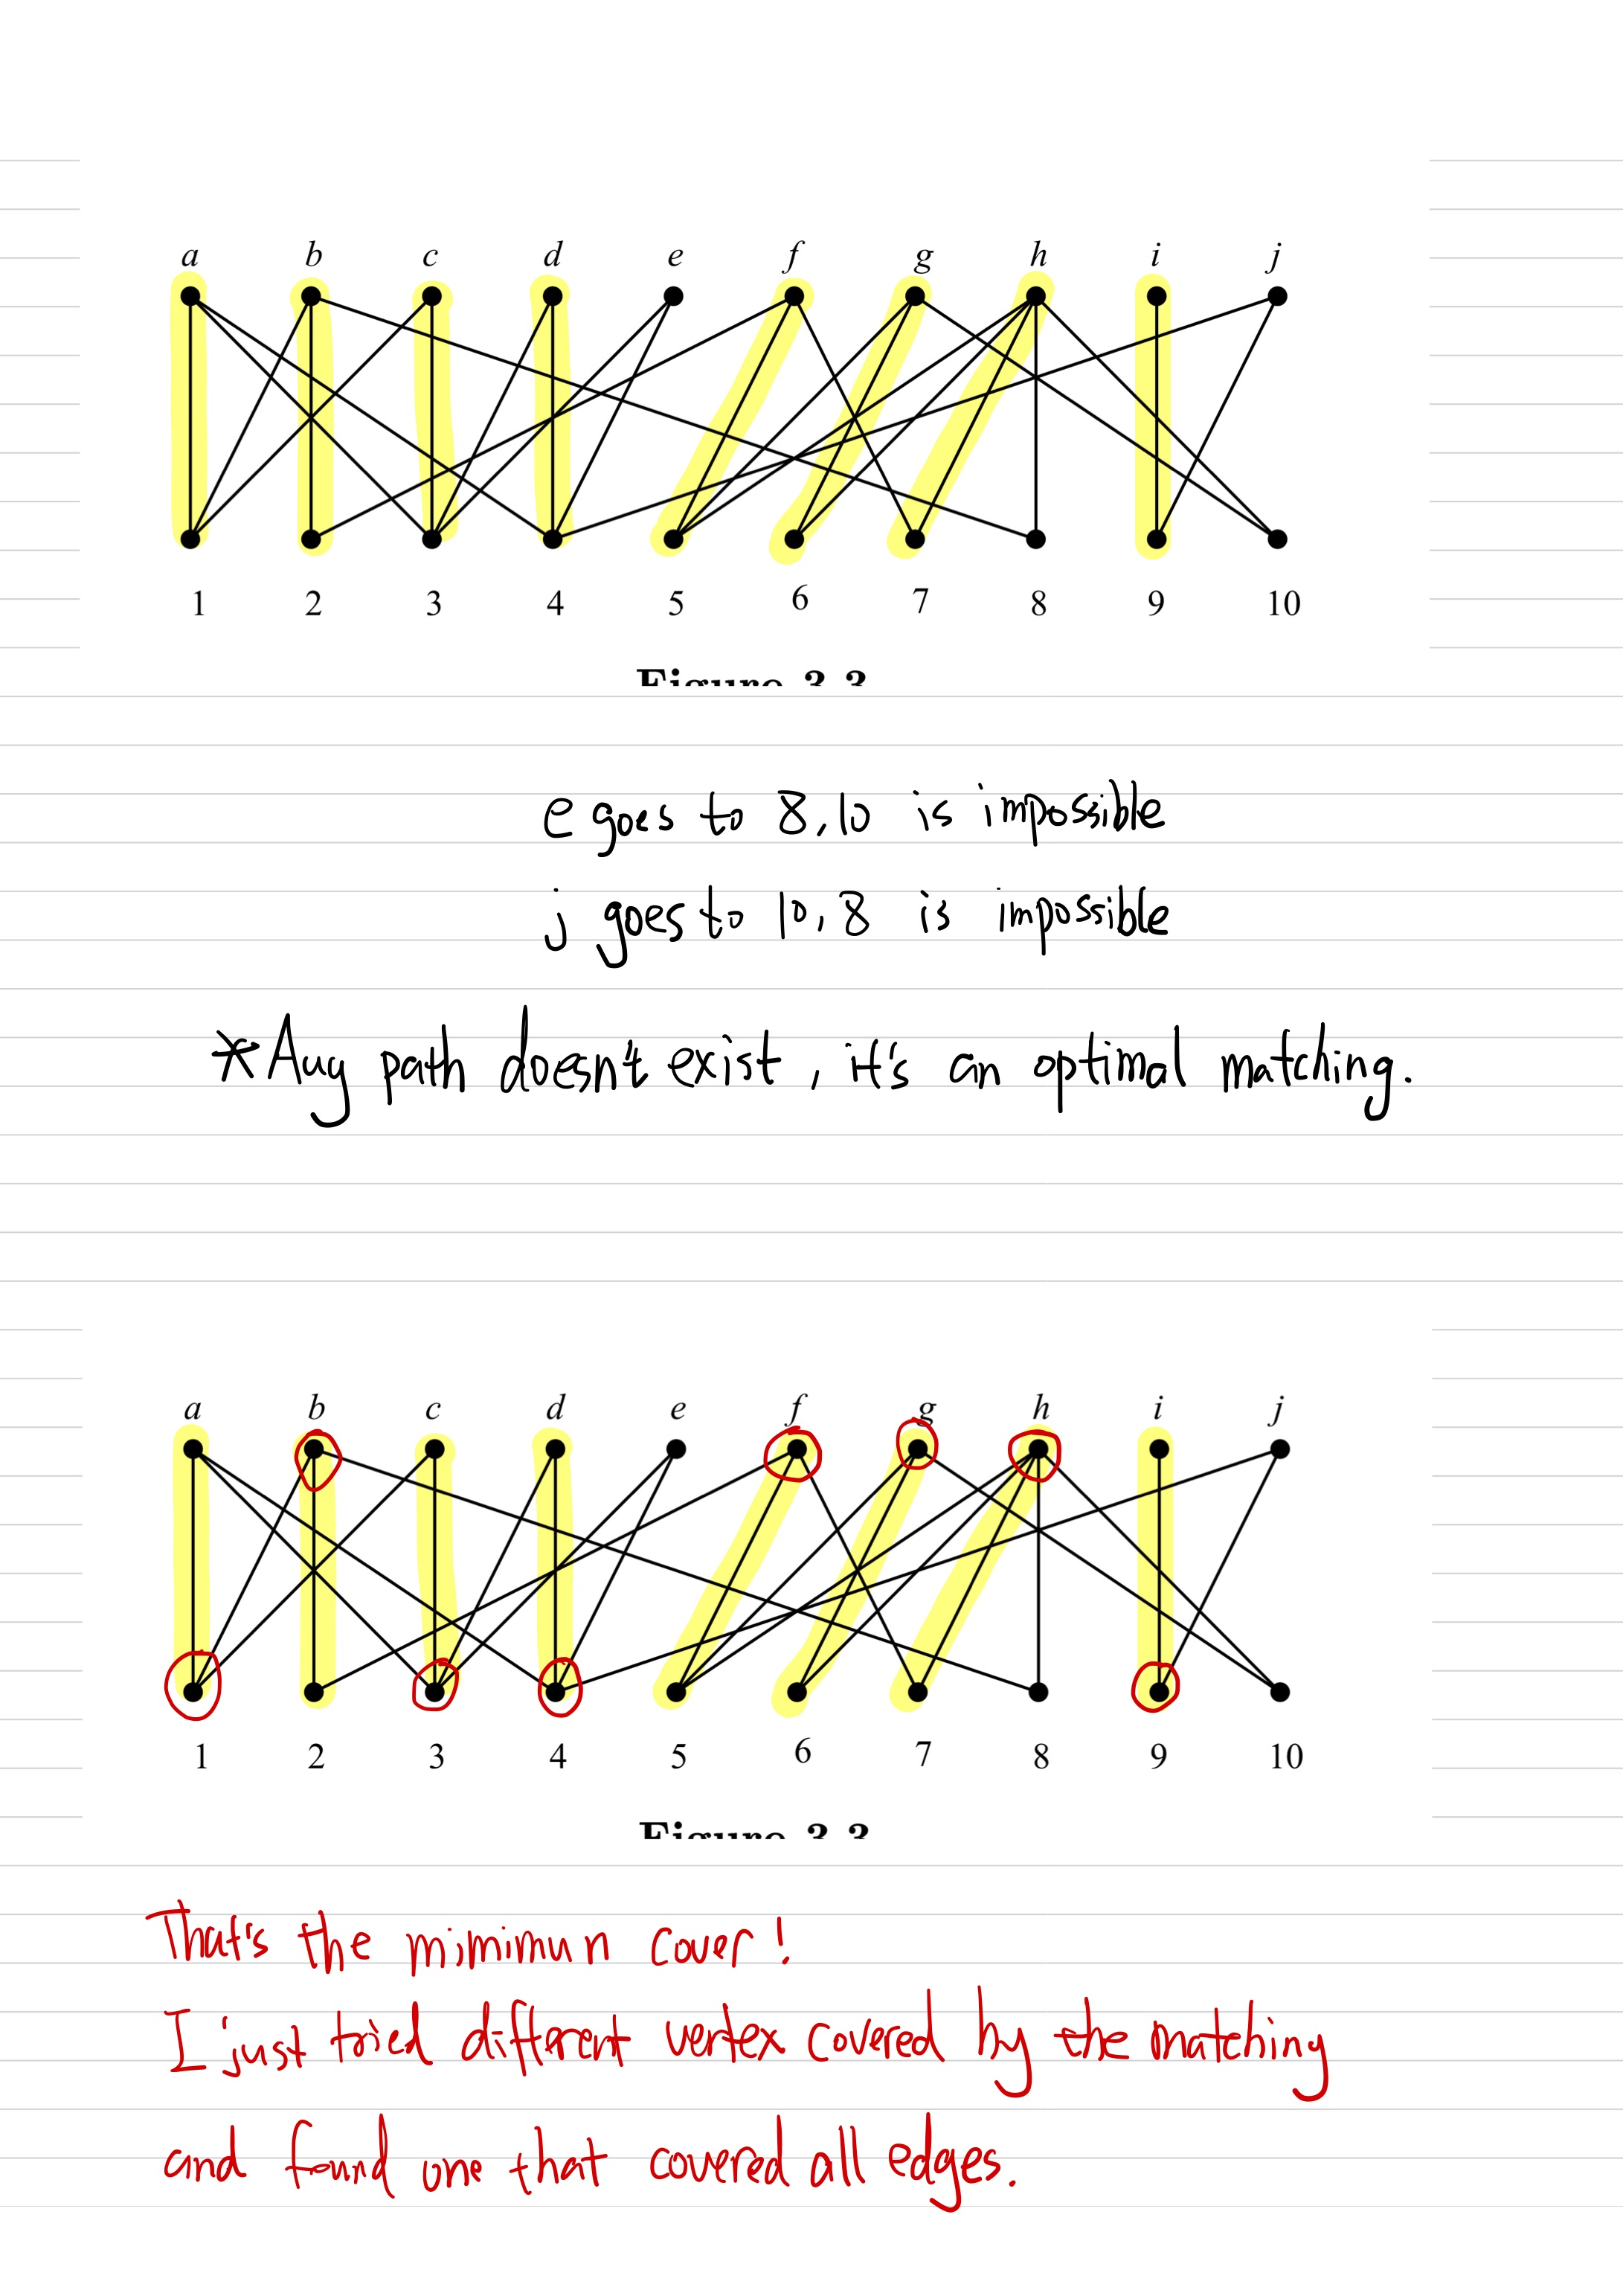 a b c d e f g h i j
1 2 3 4 5 6 7 8 9 10
Figure 3.3
e goes to 8,10 is impossible
j goes to 10,8 is impossible
*Aug path doesn't exist, it's an optimal matching.
a b c d e f g h i j
1 2 3 4 5 6 7 8 9 10
Figure 3.3
That's the minimun cover!
I just tried different vertex covered by the matching
and found one that covered all edges.